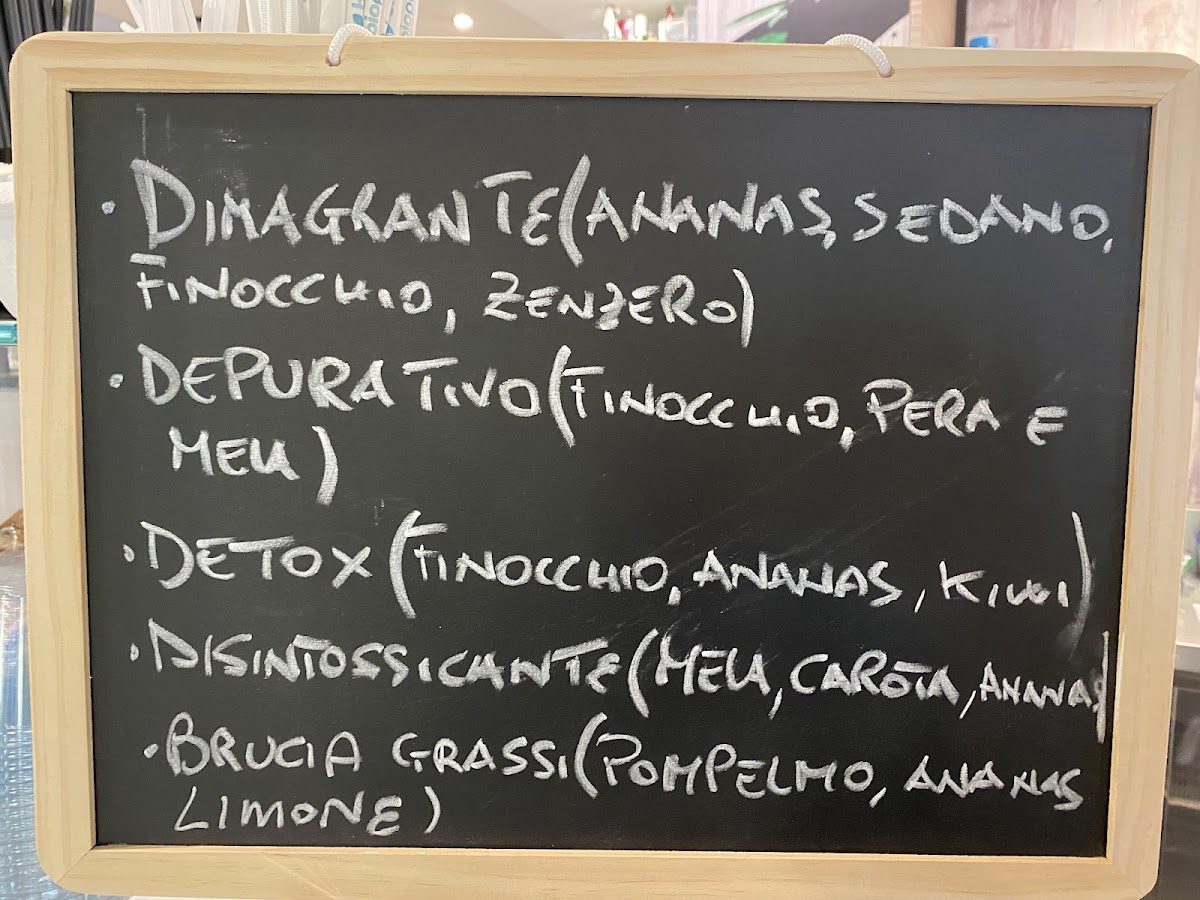 • DIMAGRANTE (ANANAS, SEDANO,
FINOCCHIO, ZENZERO)
• DEPURATIVO (FINOCCHIO, PERA E
MELA)
• DETOX (FINOCCHIO, ANANAS, KIWI)
• DISINTOSSICANTE (MELA, CAROTA, ANANAS)
• BRUCIA GRASSI (POMPELMO, ANANAS
LIMONE)